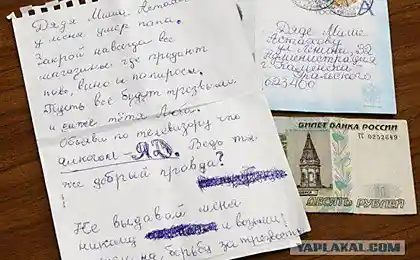 Дядя Миша Астахов
У меня умер папа.
Закрой навсегда все
магазины где продают
пиво, вино и папиросы.
Пусть всё будут трезвыми
и даже тётя Люба.
Объяви по телевизору что
алкоголь – ЯД. Ведь ты
же добрый правда?
!
Не выдавай меня
никому и возьми
на борьбу за трезвость
Дяде Мише
Астахову
ул Ленина, 32
Администрация
г Каменска
Уральского
623400
БИЛЕТ БАНКА РОССИИ
ГГ 0252649
10
ДЕСЯТЬ РУБЛЕЙ
YAPLAKAL.COM